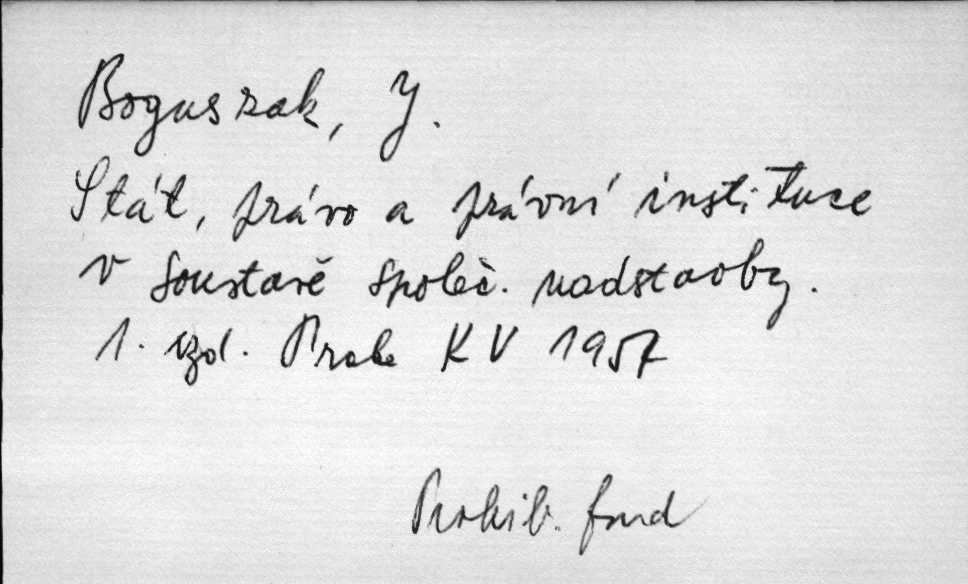 Boguszak, J.
Stát, právo a právní instituce
v soustavě společ. nadstavby.
1. vyd. Praha KV 1957
Prohib. fond